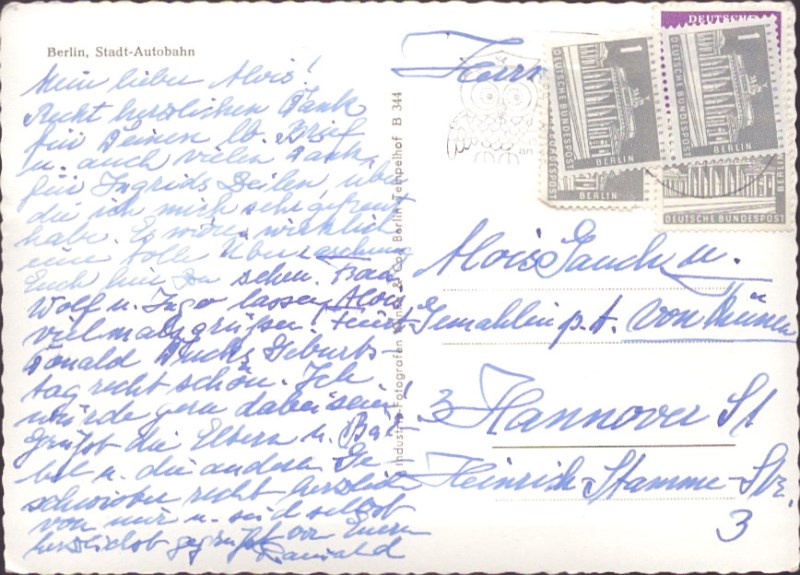 Berlin, Stadt-Autobahn
Mein lieber Alois!
Recht herzlichen Dank
für Deinen lb. Brief
u. auch vielen Dank,
für Ingrids Zeilen, über
die ich mich sehr gefreut
habe. Es wäre wirklich
eine tolle Überraschung
Euch hier zu sehen. Frau
Wolf u. Ingo lassen Alois
vielmals grüßen. Feiert
Donald Ducks Geburts-
tag recht schön. Ich
würde gern dabei sein!
Grüßt die Eltern u.
u. die anderen Ge-
schwister recht herzlich
von mir u. seid selbst
herzlichst gegrüßt von Eurem
Industrie-Fotografen & Co., Berlin-Tempelhof B 344
Herrn
Alois u.
Gemahlin p. A. von
3 Hannover St
Heinrich-Stamme-Str.
3
DEUTSCHE
1
DEUTSCHE BUNDESPOST
BERLIN
1
DEUTSCHE BUNDESPOST
BERLIN
DEUTSCHE BUNDESPOST